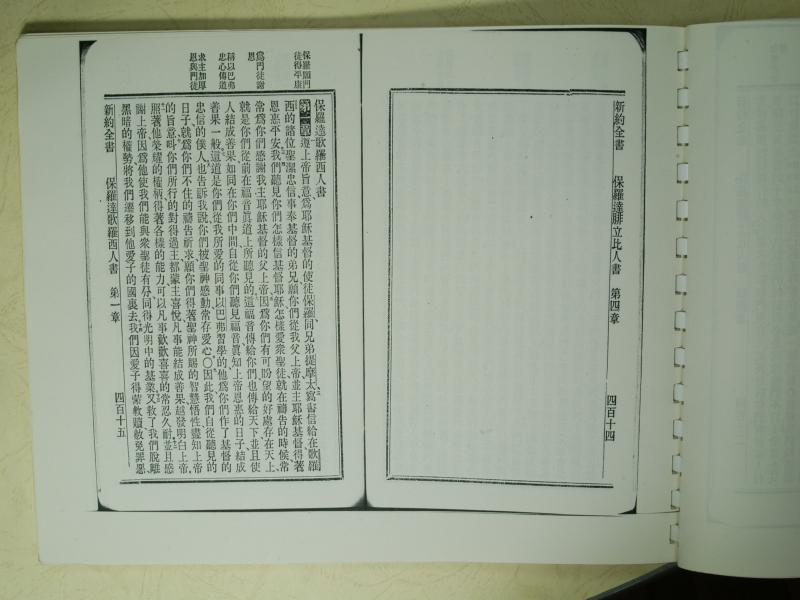 新約全書 保羅達腓立比人書 第四章 四百十四
保羅願門
徒得平康
爲門徒謝
恩
稱以巴弗
忠心傳道
求主加厚
恩與門徒
保羅達歌羅西人書
第一章 遵上帝旨意、爲耶穌基督的使徒保羅、同兄弟提摩太、寫書信給在歌羅
西的諸位聖潔忠信事奉基督的弟兄、願你們從我父上帝並主耶穌基督得著
恩惠平安、我們聽見你們怎樣信基督耶穌、怎樣愛衆聖徒、就在禱告的時候、常
常爲你們感謝我主耶穌基督的父上帝、因爲你們有可盼望的好處存在天上、
就是你們從前在福音眞道上所聽見的、這福音傳給你們、也傳給天下、並且使
人結成善果、如同在你們中間、自從你們聽見福音、眞知上帝恩惠的日子、結成
善果一般、這道是你們從我所愛的同事以巴弗習學的、他爲你們作了基督的
忠信的僕人、也告訴我說、你們被聖神感動、常存愛心、〇因此我們自從聽見的
日子、就爲你們不住的禱告祈求、願你們得著聖神所賜的智慧悟性、盡知上帝
的旨意、叫你們所行的對得過主、都蒙主喜悅、凡事能結成善果、越發明白上帝、
照著他榮耀的權柄、得著各樣的能力、可以凡事歡歡喜喜的常忍久耐、並且感
謝上帝、因爲他使我們能與衆聖徒有分、同得光明中的基業、又救了我們脫離
黑暗的權勢、將我們遷移到他愛子的國裏去、我們因愛子得蒙救贖、赦免罪惡、
新約全書 保羅達歌羅西人書 第一章 四百十五